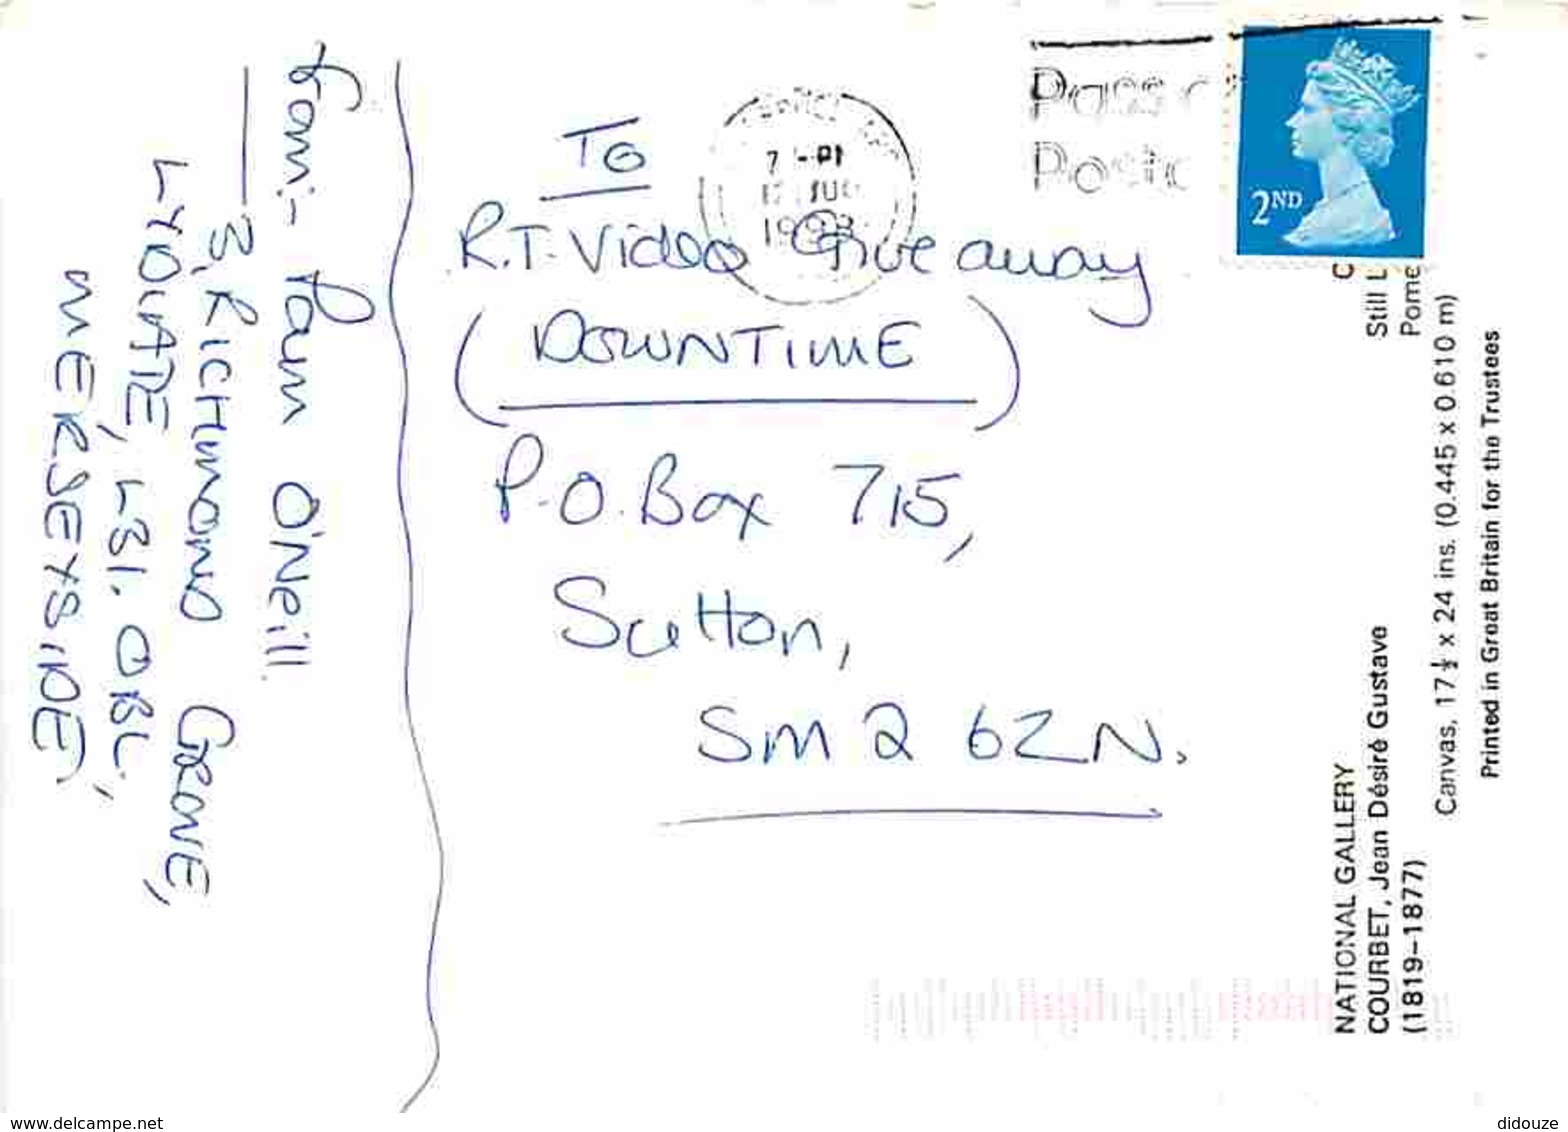 From:- Pam O'Neill
3, RICHMOND GROVE,
LYDIATE, L31. OBL,
MERSEYSIDE.
To
R.T. Video Giveaway
(DOWNTIME)
P.O. Box 715,
Sutton,
SM2 6ZN.
1993
Pass
2ND
NATIONAL GALLERY
COURBET, Jean Désiré Gustave
(1819–1877)
Still L
Pome
Canvas, 17½ x 24 ins. (0.445 x 0.610 m)
Printed in Great Britain for the Trustees
www.delcampe.net
didouze